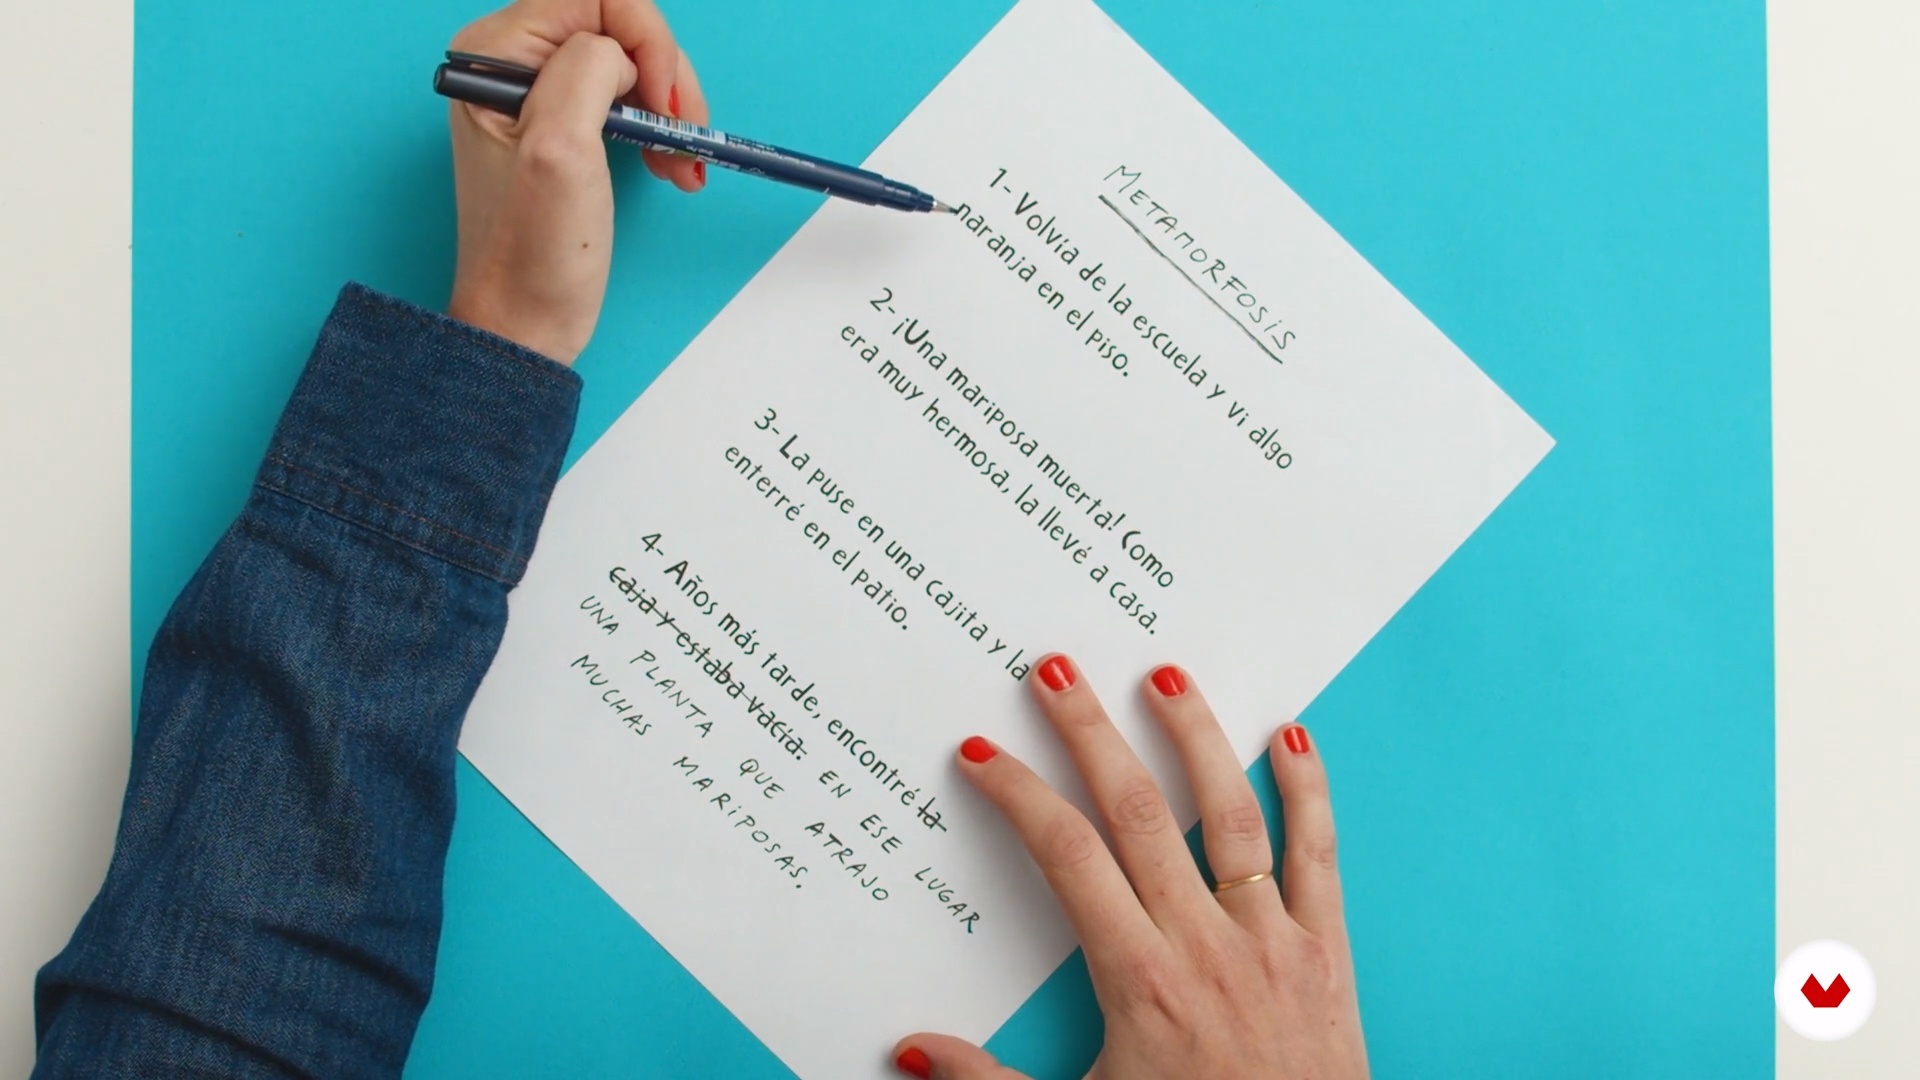 METAMORFOSiS
1- Volvía de la escuela y vi algo
naranja en el piso.
2- ¡Una mariposa muerta! Como
era muy hermosa, la llevé a casa.
3- La puse en una cajita y la
enterré en el patio.
4- Años más tarde, encontré la
caja y estaba vacía. EN ESE LUGAR
UNA PLANTA QUE ATRAJO
MUCHAS MARiPOSAS.